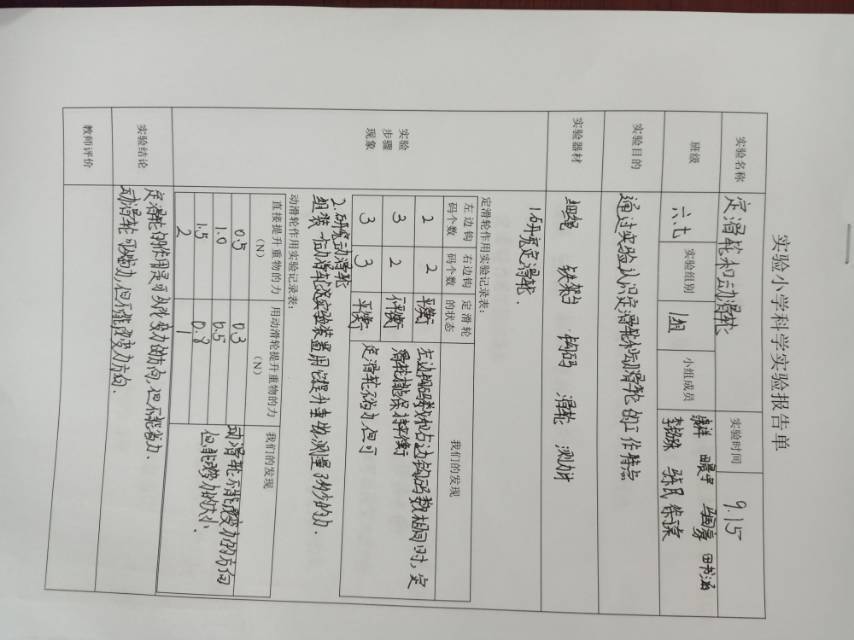 实验小学科学实验报告单
实验名称 定滑轮和动滑轮 实验时间 9.15
班级 六.七 实验组别 1组 小组成员
田书涵
实验目的 通过实验认识定滑轮和动滑轮的工作特点
实验器材 细绳 铁架台 钩码 滑轮 测力计
实验
步骤
现象
1.研究定滑轮.
定滑轮作用实验记录表:
左边钩码个数 右边钩码个数 定滑轮的状态 我们的发现
2 2 平衡
3 2 不平衡
3 3 平衡
左边钩码数和右边钩码数相同时,定
滑轮能保持平衡
定滑轮不省力,但可
2.研究动滑轮
组装一个动滑轮实验装置用它提升重物,测量了多少的力.
动滑轮作用实验记录表:
直接提升重物的力(N) 用动滑轮提升重物的力(N) 我们的发现
0.5 0.3
1.0 0.5
1.5 0.8
2 1
动滑轮不能改变力的方向
但能改变力的大小.
实验结论 定滑轮的作用是可以改变力的方向,但不能省力.
动滑轮可以省力,但不能改变力方向.
教师评价